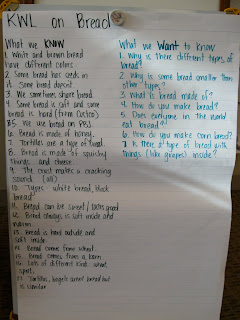 KWL on Bread
What we KNOW
1. White and brown bread
have different colors.
2. Some bread has seeds in
it. Some bread doesn't.
3. We sometimes share bread.
4. Some bread is soft and some
bread is hard (from Costco)
5. We use bread on PBJ
6. Bread is made of honey.
7. Tortillas are a type of bread.
8. Bread is made of squishy
things and cheese
9. The crust makes a crackling
sound.
10. Types - white bread, black
bread
11. Bread can be sweet / tastes good
12. Bread always is soft inside and
13. Bread is hard outside and
soft inside.
14. Bread comes from wheat.
15. Bread comes from a
16. Lots of different kinds
17. bagels aren't bread but
is similar
What we Want to know
1. Why is there different types of
bread?
2. Why is some bread smaller than
other types?
3. What is bread made of?
4. How do you make bread?
5. Does everyone in the world
eat bread?
6. How do you make corn bread?
7. Is there a type of bread with
things (like grapes) inside?